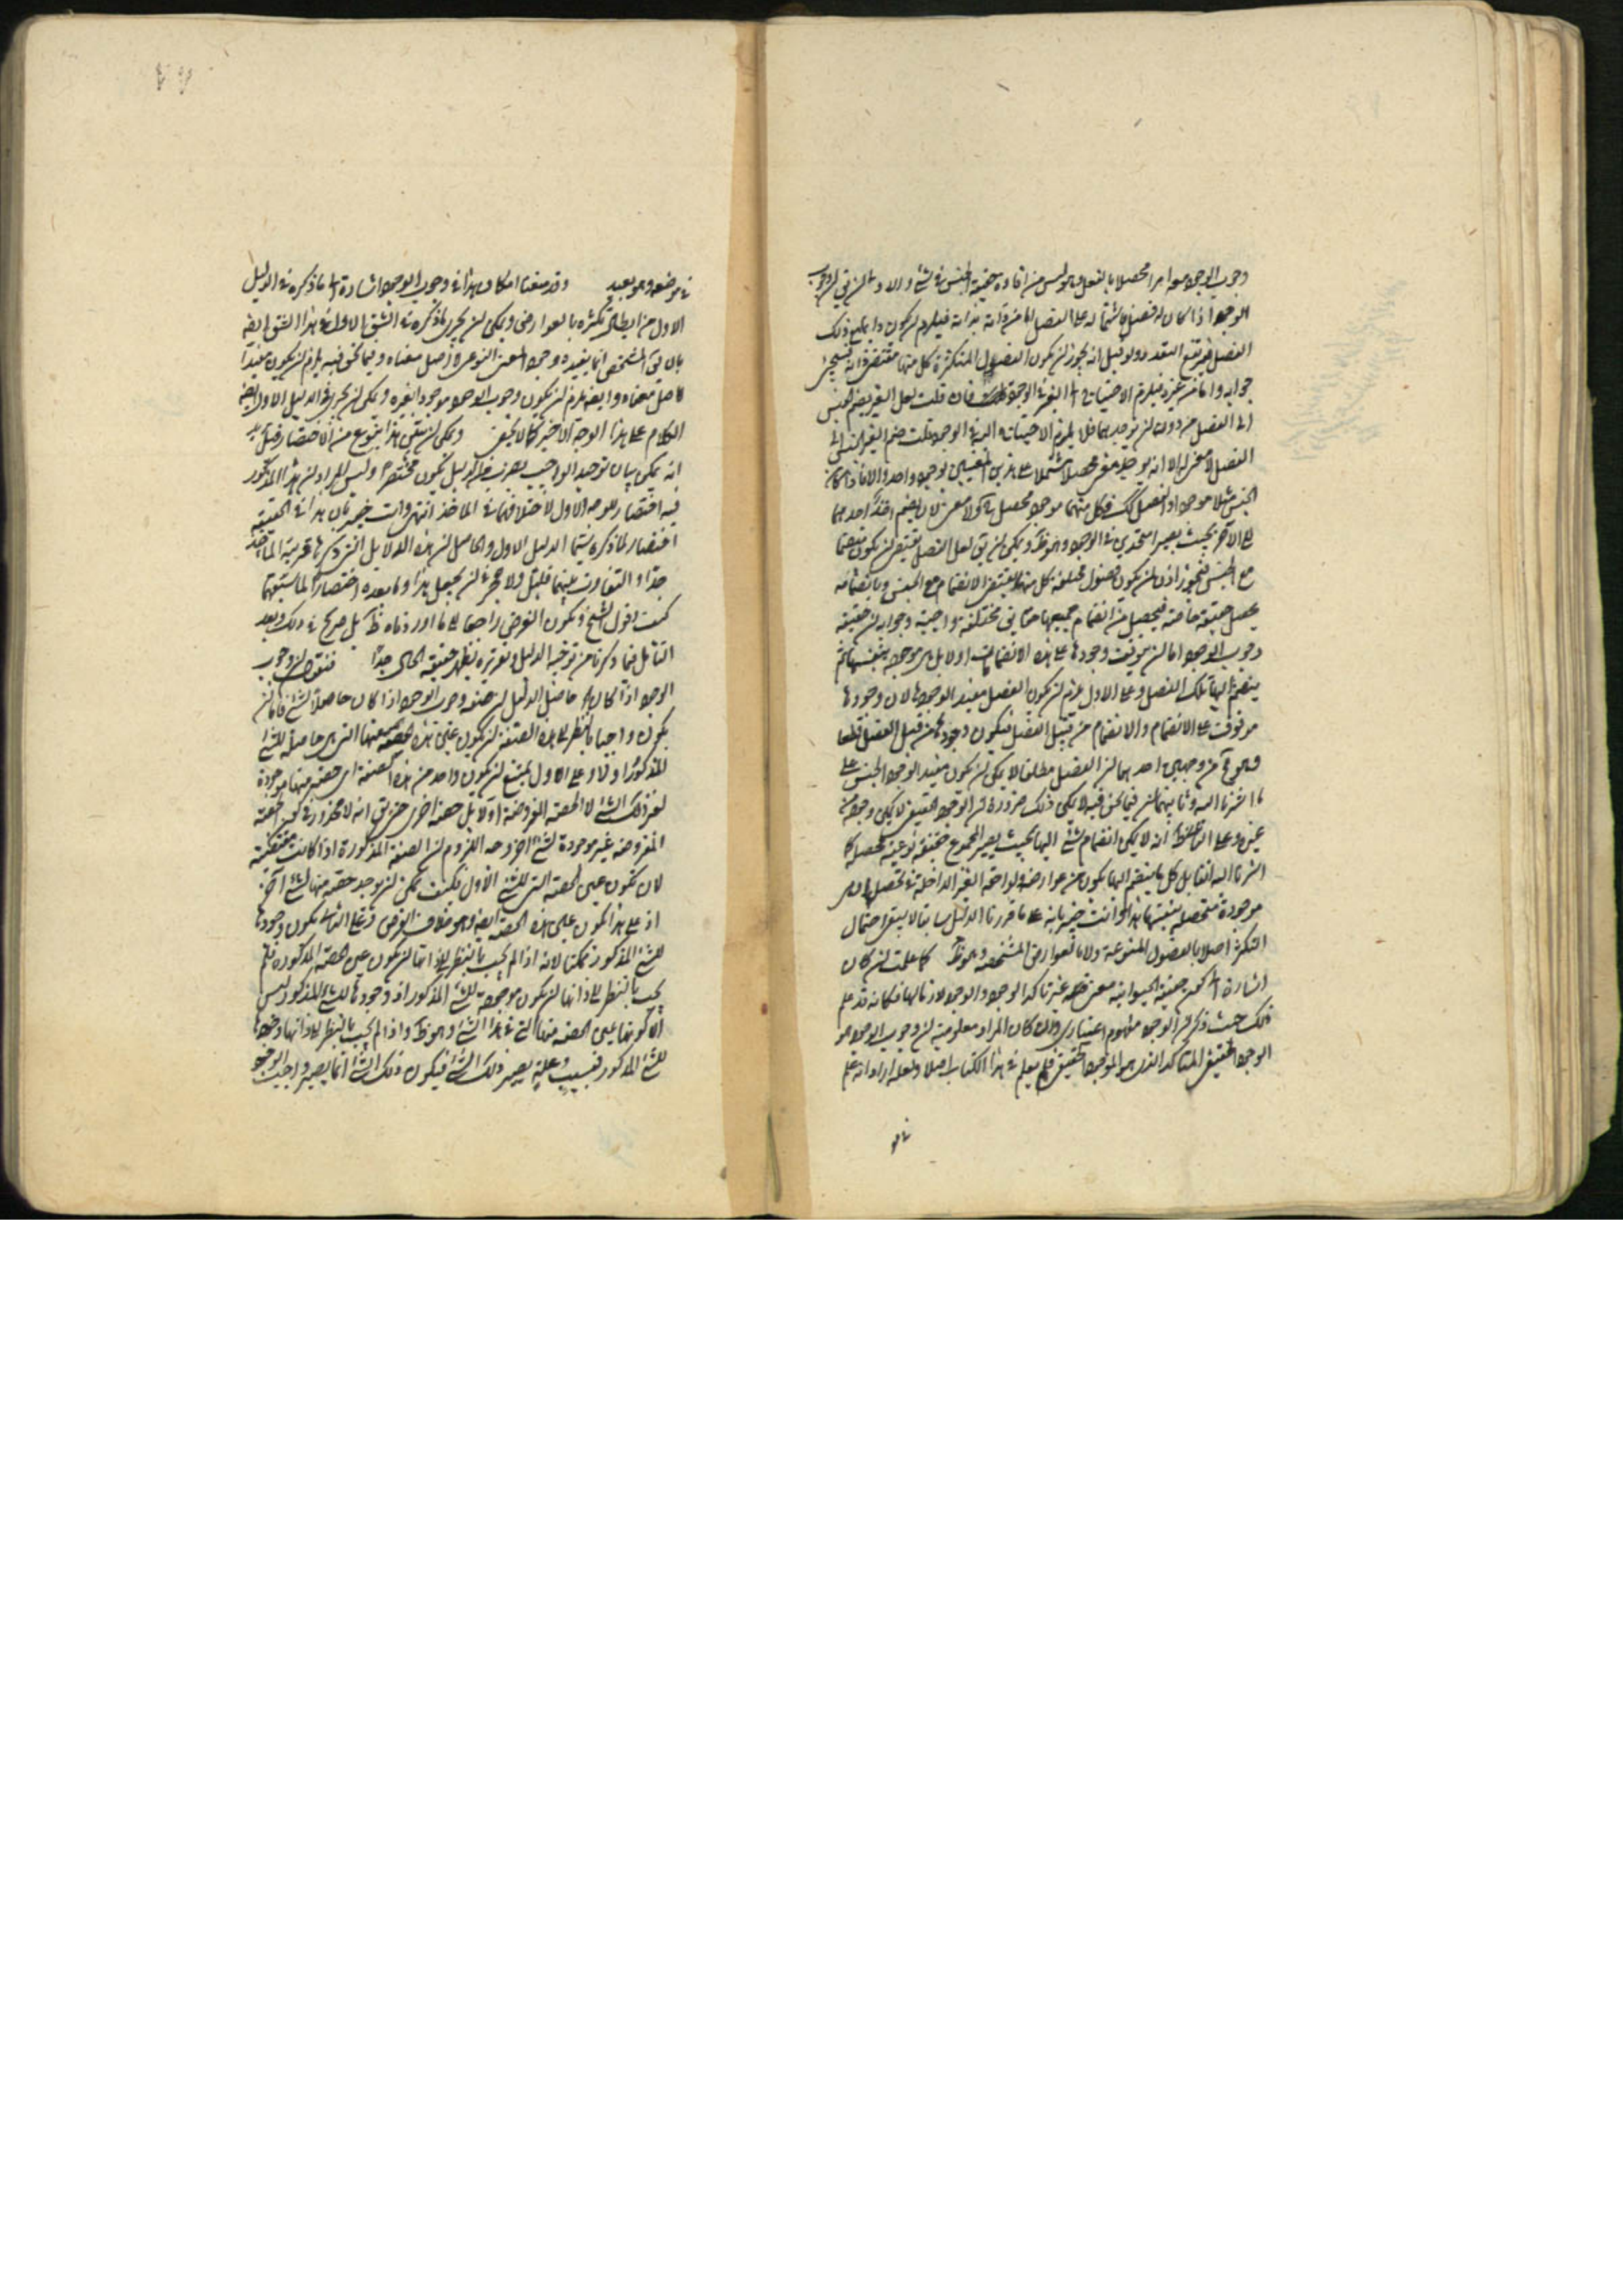 وجوب الوجود امرا محصلا بالفعل وليس من افادة حقيقة الجنس في شئ والاولى ان يق ان وجوب
الوجود اذا كان له فصل فاشتماله على الفصل اما من ذاته بذاته فيلزم ان يكون دايما مع ذلك
الفصل فيرتفع التعدد ولو قيل انه يجوز ان يكون الفصول المتكثرة كل منها مقتضى ذاته فسيجئ
جوابه واما من غيره فيلزم الاحتياج الى الغير في الوجود فان قلت لعل الغير يضم الجنس
الى الفصل من دون ان يوجدهما فلا يلزم الاحتياج اليه في الوجود قلت ضم الغير الجنس الى
الفصل لا معنى له الا انه يوجد معنى محصلا مشتملا على هذين المعنيين بوجود واحد والا فاذا كان
الجنس مثلا موجودا والفصل كك فكل منهما موجود محصل فلا معنى لان يضم احدهما
الى الآخر بحيث يصيرا متحدين في الوجود وهو ظ ويمكن ان يق لعل الفصل يقتضى ان يكون منضما
مع الجنس فيجوز اذن ان يكون فصول مختلفة كل منها يقتضى الانضمام مع الجنس وبانضمامه
يحصل حقيقة خاصة فيحصل من انضمام جميعها حقايق مختلفة واجبة وجوابه ان حقيقة
وجوب الوجود اما ان يتوقف وجودها على هذه الانضمامات اولا بل هى موجودة بنفسها ثم
ينضم اليها تلك الفصل وعلى الاول يلزم ان يكون الفصل مفيد الوجود لان وجودها
موقوف على الانضمام والانضمام من قبل الفصل فيكون وجودها من قبل الفصل قطعا
وهو مح من وجهين احدهما ان الفصل مطلقا لا يمكن ان يكون مفيد الوجود الجنس على
ما اشرنا اليه وثانيهما ان فيما نحن فيه لا يمكن ذلك ضرورة ان الوجود الحقيقى لا يمكن وجوده من
غيره وعلى الثانى انه لا يمكن انضمام شئ اليها بحيث يصير المجموع حقيقة نوعية محصلة كما
اشرنا اليه انفا بل كل ما ينضم اليها يكون من عوارضه ولواحقه الغير الداخلة في تحصله
موجودة متحصلة بنفسها هذا وانت خبير بانه على ما قررنا الدليل سابقا لا يبقى احتمال
التكثر اصلا بالفصول المنوعة ولا بالعوارض المشخصة وهو ظ كما علمت ان كان
اشارة الى كون حقيقة الحيوانية معنى غير تأكد الوجود والوجود لازما لها فكانه قد علم
ذلك حيث ذكر ان الوجود مفهوم اعتبارى وان كان المراد معلومية ان وجوب الوجود هو
الوجود الحقيقى المتأكد الذى هو الوجود الحقيقى فلم يعلم في هذا الكتاب اصلا ولعله اراد انه علم
في مو
في موضعه وهو بعيد وقد منعنا امكان هذا في وجوب الوجود اشارة الى ما ذكره في الدليل
الاول من ابطال تكثره بالعوارض ويمكن ان يجرى ما ذكره في الشق الاول في هذا الشق ايضا
بان يق المشخص انما يفيد وجود المعنى النوعى لا اصل معناه وفيما نحن فيه يلزم ان يكون مفيدا
لاصل معناه وايضا يلزم ان يكون وجوب الوجود موجودا بغيره ويمكن ان يجرى في الدليل الاول ايضا
الكلام على هذا الوجه الاخير كما لا يخفى ويمكن ان يبقى هذا بنوع من الاختصار قيل يريد
انه يمكن بيان توحيد الواجب بضرب من الدليل يكون مختصرا وليس المراد ان هذا المذكور
فيه اختصار للوجه الاول لاختلافهما في الماخذ انتهى وانت خبير بان هذا في الحقيقة
اختصار لما ذكره سيما الدليل الاول والحاصل ان هذه الدلايل التى ذكرها قريبة المأخذ
جدا والتفاوت بينهما قليل ولا حجر في ان يجعل هذا وما بعده اختصارا لما سبقهما
كيف وقول الشيخ ويكون الغرض راجعا الى ما اوردناه ظ بل صريح في ذلك وبعد
التأمل فيما ذكرنا من توجيه الدليل وتقريره يظهر حقيقة الحال جدا فنقول ان وجوب
الوجود اذا كان حاصل الدليل ان صفة وجوب الوجود اذا كان حاصلا لشئ فاما ان
يكون واجبا بالنظر الى هذه الصفة ان يكون عين هذه الحصة منها التى هى حاصلة للشئ
المذكور اولا وعلى الاول يمتنع ان يكون واحد من هذه الصفة اى حصة منها موجودة
لغير ذلك الشئ لا الحصة المفروضة اولا بل حصة اخرى حتى يق انه لا محذور في كون الحصة
المفروضة غير موجودة لشئ اخر وجه اللزوم ان الصفة المذكورة اذا كانت مقتضية
لان تكون عين الحصة التى للشئ الاول فكيف يمكن ان يوجد حصة منها لشئ آخر
اذ على هذا يكون عين هذه الحصة ايضا وهو خلاف الفرض وعلى الثانى يكون وجودها
للشئ المذكور ممكنا لانه اذا لم يجب بالنظر الى ذاتها ان يكون عين الحصة المذكورة فلم
يجب بالنظر الى ذاتها ان يكون موجودة للشئ المذكور اذ وجودها للشئ المذكور ليس
الا كونها عين الحصة منها التى في هذا الشئ وهو ظ واذا لم يجب بالنظر الى ذاتها وجودها
للشئ المذكور فبسبب وعلة يصير ذلك الشئ فيكون ذلك الشئ انما يصير واجب الوجود